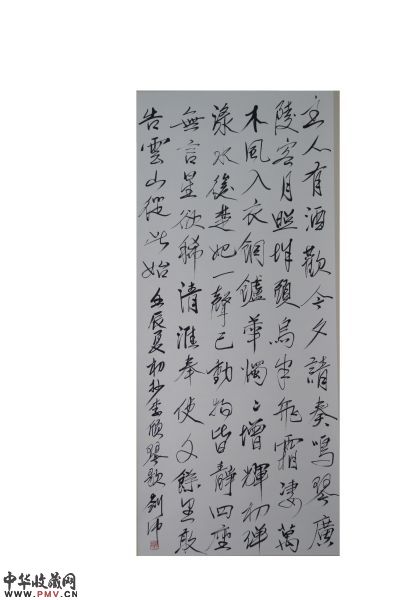 主人有酒歡今夕請奏鳴琴廣
陵客月照城頭烏半飛霜淒萬
木風入衣銅鑪華燭〻增輝初彈
淥水後楚妃一聲已動物皆靜四座
無言星欲稀清淮奉使千餘里敢
告雲山從此始 壬辰夏初抄李頎琴歌
中华收藏网
www.PMV.CN